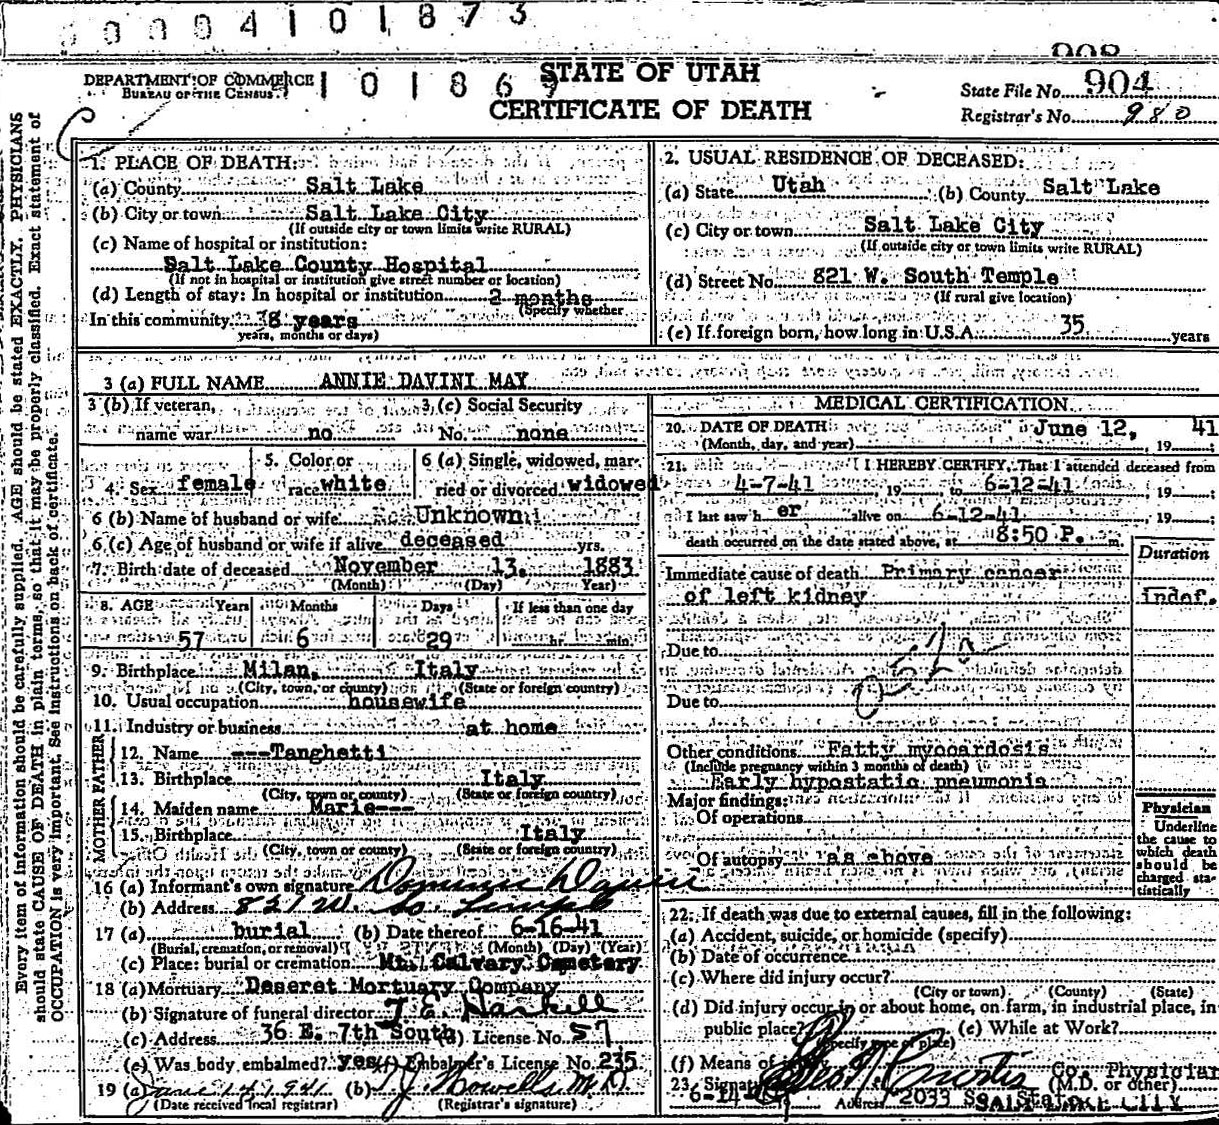 0004101873
908
DEPARTMENT OF COMMERCE
BUREAU OF THE CENSUS
101869
STATE OF UTAH
CERTIFICATE OF DEATH
State File No. 904
Registrar's No. 980
Every item of information should be carefully supplied. AGE should be stated EXACTLY. PHYSICIANS
should state CAUSE OF DEATH in plain terms, so that it may be properly classified. Exact statement of
OCCUPATION is very important. See instructions on back of certificate.
1. PLACE OF DEATH:
(a) County Salt Lake
(b) City or town Salt Lake City
(If outside city or town limits write RURAL)
(c) Name of hospital or institution:
Salt Lake County Hospital
(If not in hospital or institution give street number or location)
(d) Length of stay: In hospital or institution 2 months
(Specify whether
In this community 38 years
years, months or days)
2. USUAL RESIDENCE OF DECEASED:
(a) State Utah (b) County Salt Lake
(c) City or town Salt Lake City
(If outside city or town limits write RURAL)
(d) Street No. 821 W. South Temple
(If rural give location)
(e) If foreign born, how long in U.S.A. 35 years
3 (a) FULL NAME ANNIE DAVINI MAY
3 (b) If veteran, name war no
3 (c) Social Security No. none
4. Sex female
5. Color or race white
6 (a) Single, widowed, married or divorced widowed
6 (b) Name of husband or wife Unknown
6 (c) Age of husband or wife if alive deceased yrs.
7. Birth date of deceased November 13, 1883
(Month) (Day) Year)
8. AGE Years Months Days If less than one day
57 6 29 hr. min.
9. Birthplace Milan, Italy
(City, town, or county) (State or foreign country)
10. Usual occupation housewife
11. Industry or business at home
FATHER
12. Name ---Tanghetti
13. Birthplace Italy
(City, town or county) (State or foreign country)
MOTHER
14. Maiden name Marie---
15. Birthplace Italy
(City, town or county) (State or foreign country)
16 (a) Informant's own signature Dominic Davini
(b) Address 821 W. So. Temple
17 (a) burial (b) Date thereof 6-16-41
(Burial, cremation, or removal) (Month) (Day) (Year)
(c) Place: burial or cremation Mt. Calvary Cemetery
18 (a) Mortuary Deseret Mortuary Company
(b) Signature of funeral director J. E. Haskell
(c) Address 36 E. 7th South (d) License No. 57
(e) Was body embalmed? yes (f) Embalmer's License No. 235
19 (a) June 14 1941 (b)
(Date received local registrar) (Registrar's signature)
MEDICAL CERTIFICATION
20. DATE OF DEATH June 12, 1941;
(Month, day, and year)
21. I HEREBY CERTIFY, That I attended deceased from
4-7-41, 19 to 6-12-41, 19;
I last saw her alive on 6-12-41, 19;
death occurred on the date stated above, at 8:50 P. m.
Duration
Immediate cause of death Primary cancer
of left kidney indef.
Due to
52a
Due to
Other conditions Fatty myocardosis
(Include pregnancy within 3 months of death)
Early hypostatic pneumonia
Major findings:
Of operations
Of autopsy as above
Physician
Underline
the cause to
which death
should be
charged sta-
tistically
22. If death was due to external causes, fill in the following:
(a) Accident, suicide, or homicide (specify)
(b) Date of occurrence
(c) Where did injury occur?
(City or town) (County) (State)
(d) Did injury occur in or about home, on farm, in industrial place, in
public place? (e) While at Work?
(Specify type of place)
(f) Means of
23. Signature Curtis Co. Physician
(M.D. or other)
6-14-41 Address 2033 So. State
SALT LAKE CITY